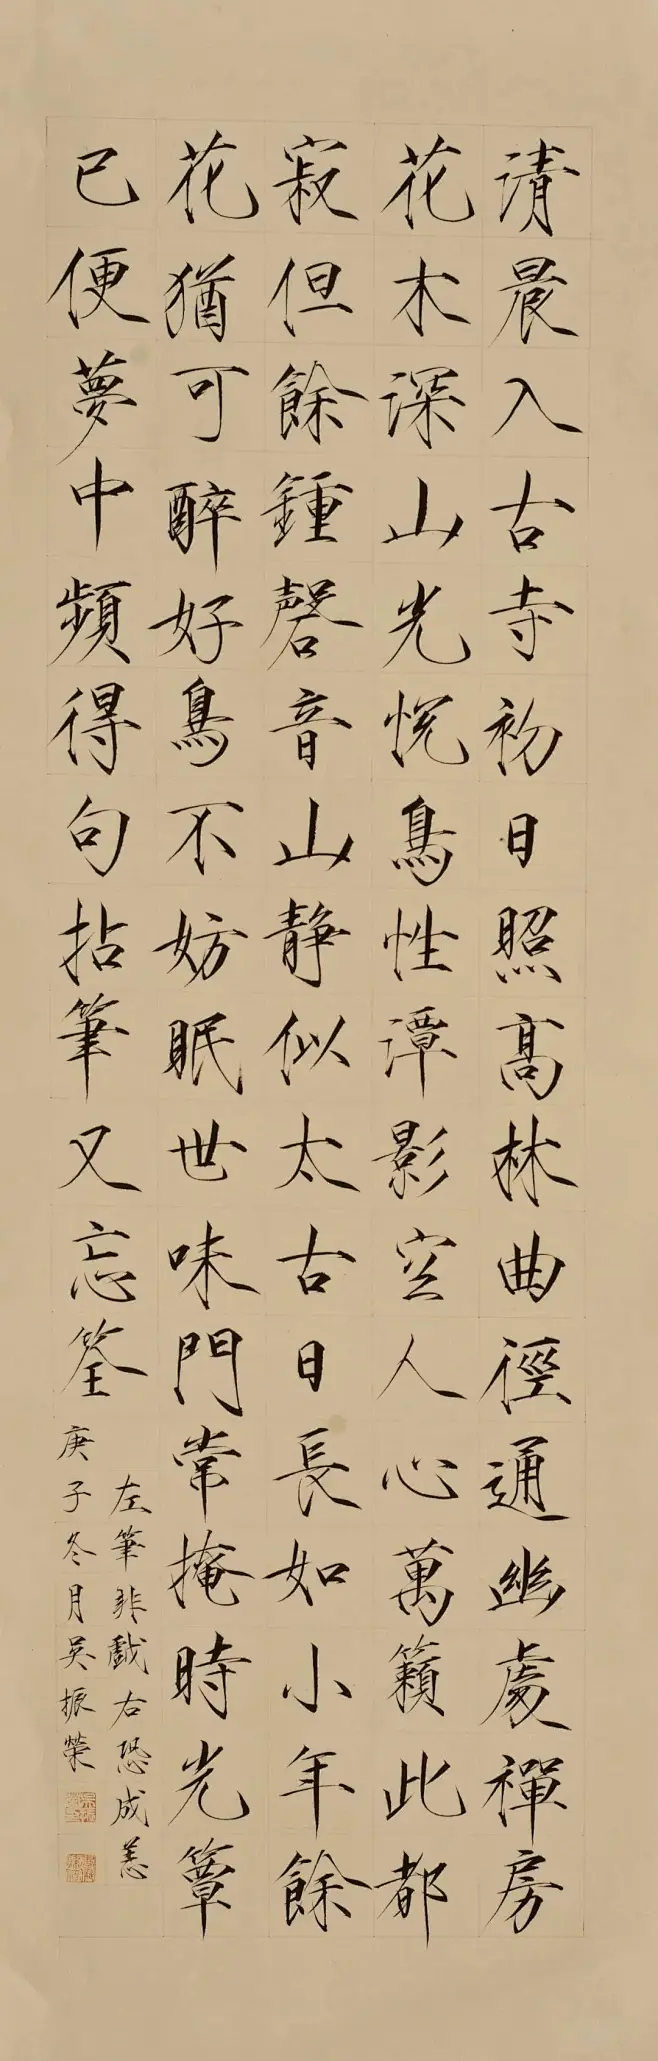 清晨入古寺初日照高林曲徑通幽處禪房
花木深山光悅鳥性潭影空人心萬籟此都
寂但餘鍾磬音山靜似太古日長如小年餘
花猶可醉好鳥不妨眠世味門常掩時光簟
已便夢中頻得句拈筆又忘筌
左筆非戲右恐成恙
庚子冬月吳振榮